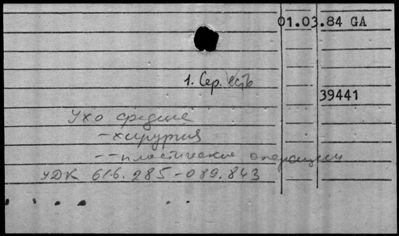 01.03.84 GA
1. Сер. есть
39441
Ухо среднее
- хирургия
-- пластические операции
УДК 616.285-089.843